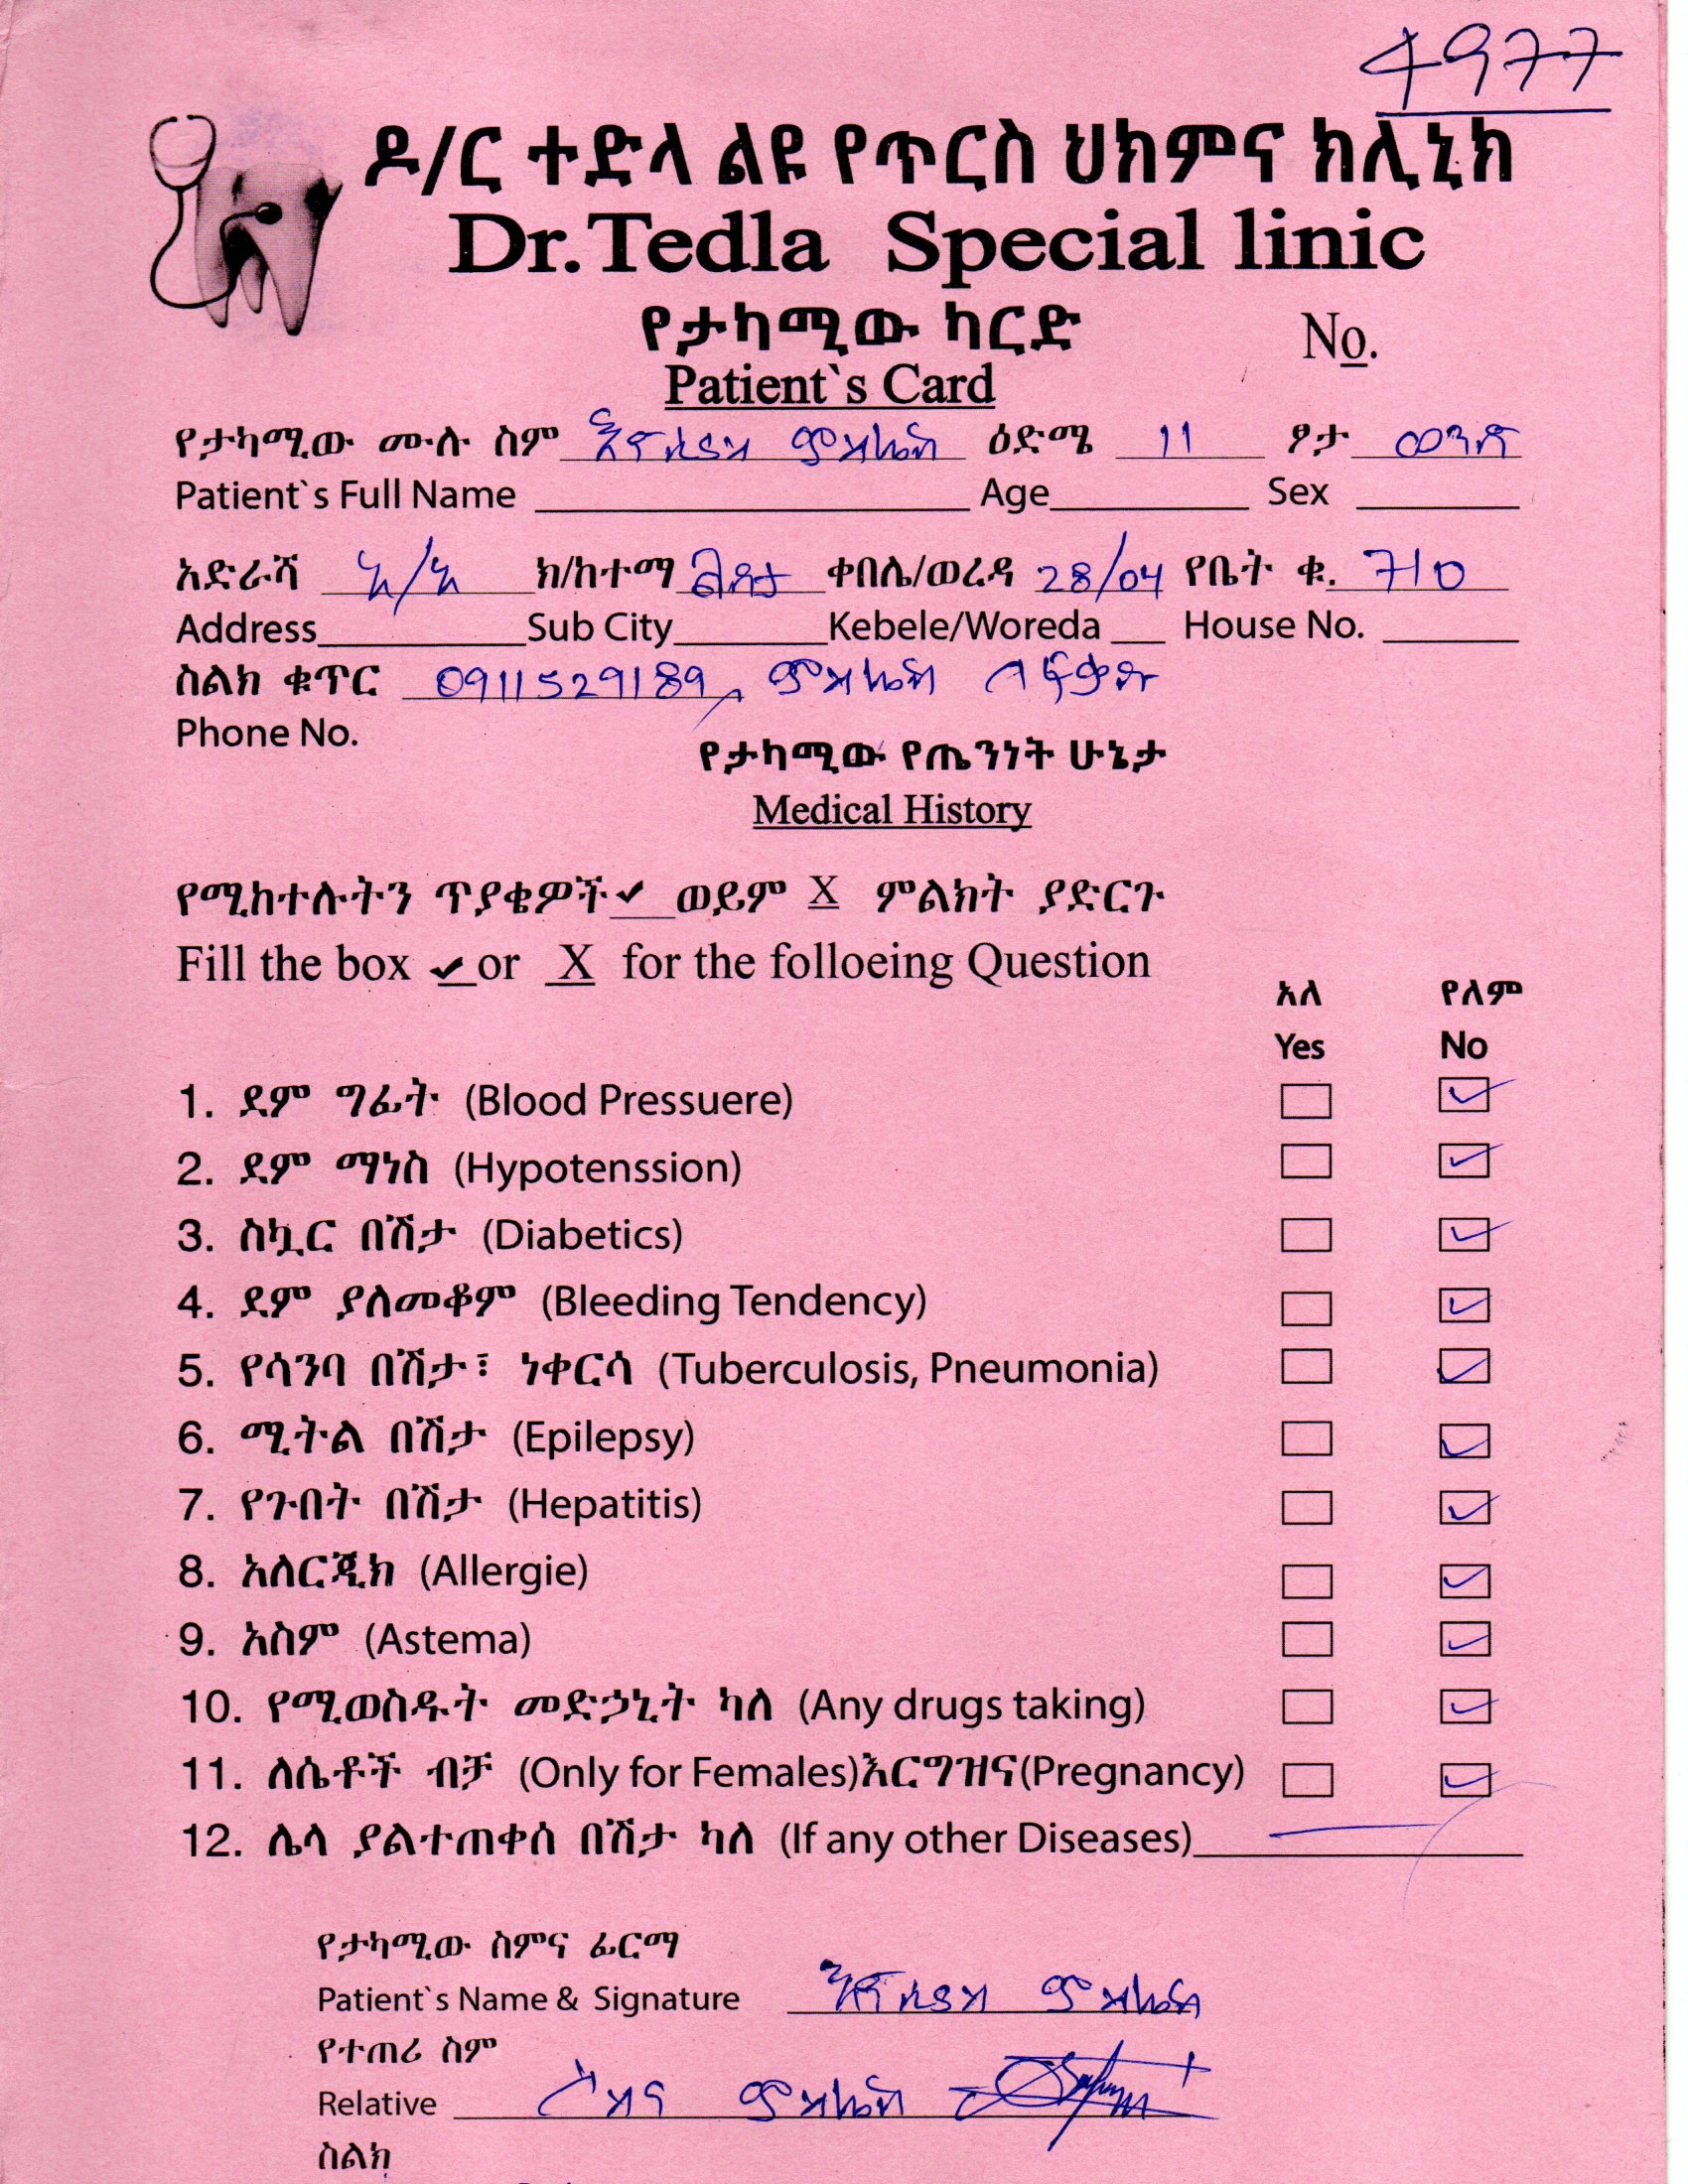 4977
ዶ/ር ተድላ ልዩ የጥርስ ህክምና ክሊኒክ
Dr.Tedla Special linic
የታካሚው ካርድ
No.
Patient`s Card
የታካሚው ሙሉ ስም ምህረት ዕድሜ 11 ፆታ ወንድ
Patient`s Full Name Age Sex
አድራሻ አ/አ ክ/ከተማ ልደታ ቀበሌ/ወረዳ 28/04 የቤት ቁ. 710
Address Sub City Kebele/Woreda House No.
ስልክ ቁጥር 0911529189
Phone No.
የታካሚው የጤንነት ሁኔታ
Medical History
የሚከተሉትን ጥያቄዎች ✔ ወይም X ምልክት ያድርጉ
Fill the box ✔ or X for the folloeing Question
አለ የለም
Yes No
1. ደም ግፊት (Blood Pressuere)
2. ደም ማነስ (Hypotenssion)
3. ስኳር በሽታ (Diabetics)
4. ደም ያለመቆም (Bleeding Tendency)
5. የሳንባ በሽታ፣ ነቀርሳ (Tuberculosis, Pneumonia)
6. ሚትል በሽታ (Epilepsy)
7. የጉበት በሽታ (Hepatitis)
8. አለርጂክ (Allergie)
9. አስም (Astema)
10. የሚወስዱት መድኃኒት ካለ (Any drugs taking)
11. ለሴቶች ብቻ (Only for Females)እርግዝና(Pregnancy)
12. ሌላ ያልተጠቀሰ በሽታ ካለ (If any other Diseases)
የታካሚው ስምና ፊርማ
Patient`s Name & Signature
የተጠሪ ስም
Relative
ስልክ